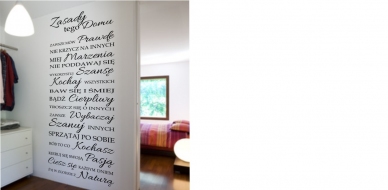 Zasady
tego Domu
ZAWSZE MÓW Prawdę
NIE KRZYCZ NA INNYCH
MIEJ Marzenia
NIE PODDAWAJ SIĘ
WYKORZYSTUJ Szansę
Kochaj WSZYSTKICH
BAW SIĘ I ŚMIEJ
BĄDŹ Cierpliwy
TROSZCZ SIĘ O INNYCH
ZAWSZE Wybaczaj
Szanuj INNYCH
SPRZĄTAJ PO SOBIE
RÓB TO CO Kochasz
Pasją
Ciesz się KAŻDYM DNIEM
Naturą